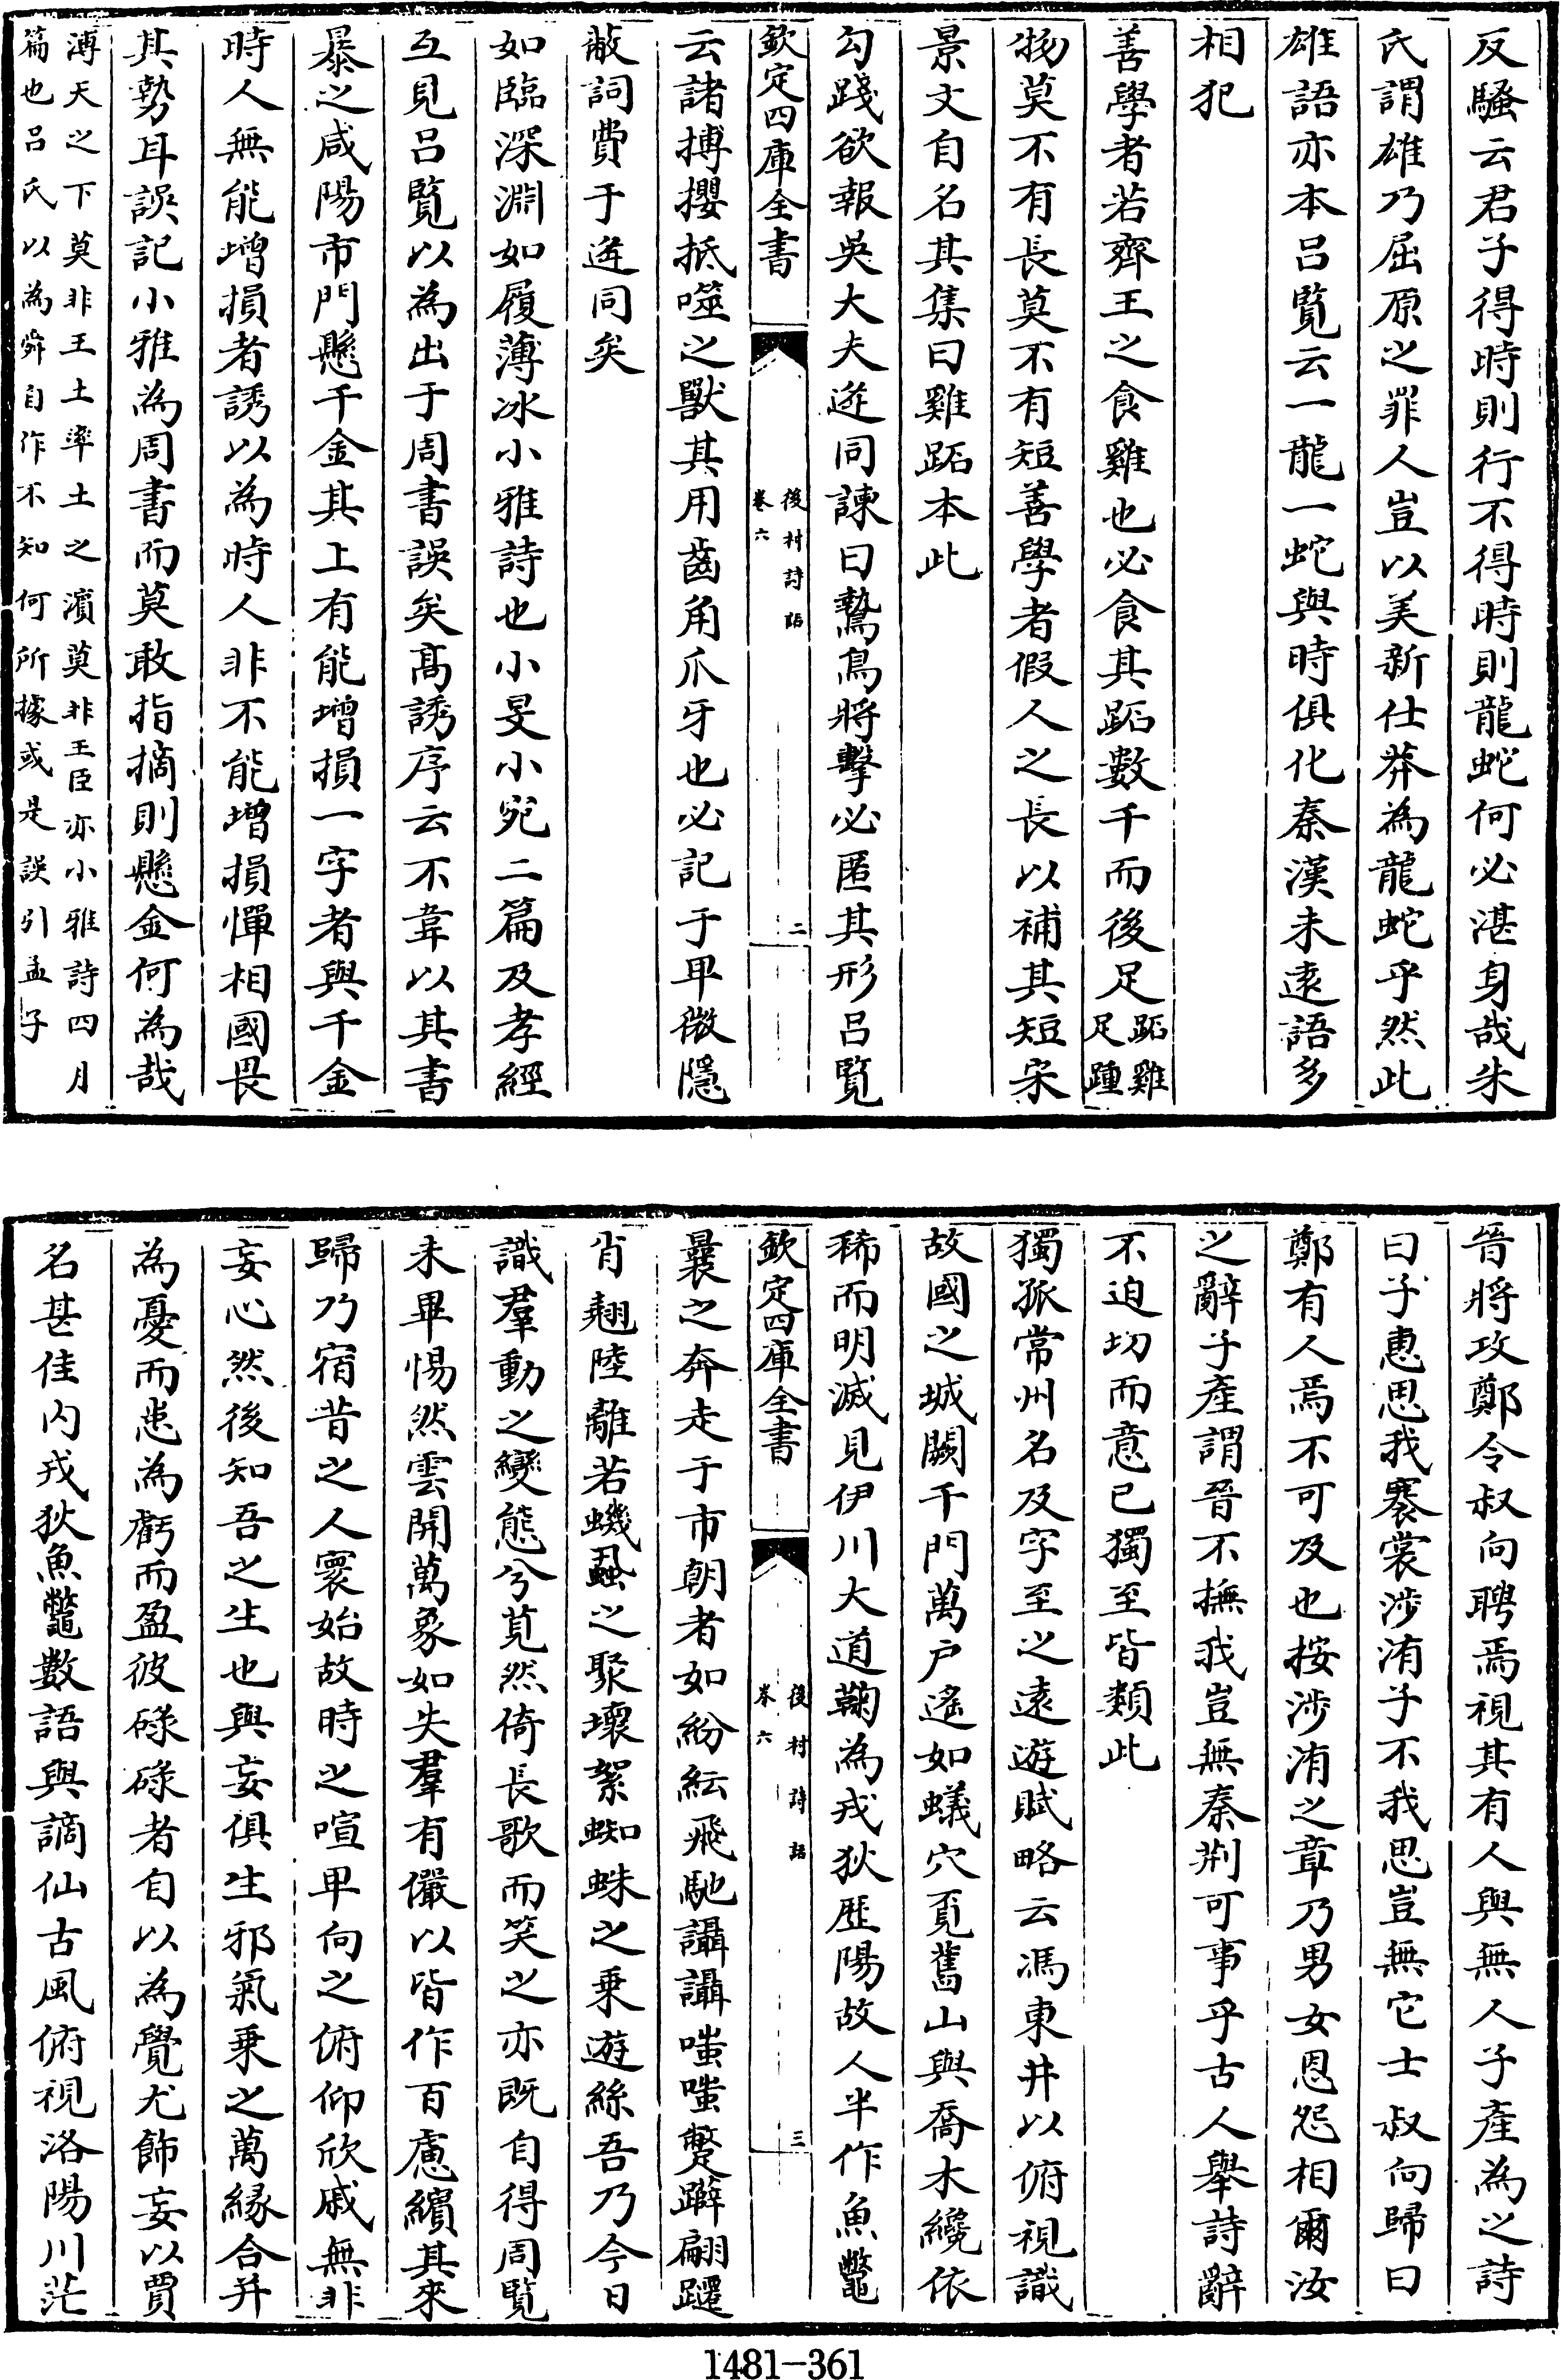 反騷云君子得時則行不得時則龍蛇何必湛身哉朱
氏謂雄乃屈原之罪人豈以美新仕莽為龍蛇乎然此
雄語亦本呂覽云一龍一蛇與時俱化秦漢未逺語多
相犯
善學者若齊王之食雞也必食其跖數千而後足跖雞足踵
物莫不有長莫不有短善學者假人之長以補其短宋
景文自名其集曰雞跖本此
勾踐欲報吳大夫逄同諫曰鷙鳥將擊必匿其形呂覽
欽定四庫全書
後村詩話
卷六
二
云諸搏攫抵噬之獸其用齒角爪牙也必記于卑微隱
蔽詞費于逄同矣
如臨深淵如履薄冰小雅詩也小旻小宛二篇及孝經
互見呂覽以為出于周書誤矣髙誘序云不韋以其書
暴之咸陽市門懸千金其上有能增損一字者與千金
時人無能增損者誘以為時人非不能增損憚相國畏
其勢耳誤記小雅為周書而莫敢指摘則懸金何為哉
溥天之下莫非王土率土之濱莫非王臣亦小雅詩四月
篇也呂氏以為舜自作不知何所據或是誤引孟子
晉將攻鄭令叔向聘焉視其有人與無人子產為之詩
曰子惠思我褰裳涉洧子不我思豈無它士叔向歸曰
鄭有人焉不可及也按涉洧之章乃男女恩怨相爾汝
之辭子產謂晉不撫我豈無秦荆可事乎古人舉詩辭
不迫切而意已獨至皆類此
獨孤常州名及字至之逺遊賦略云馮東井以俯視識
故國之城闕千門萬户遙如蟻穴覔舊山與喬木纔依
稀而明滅見伊川大道鞠為戎狄歴陽故人半作魚鼈
欽定四庫全書
後村詩話
卷六
三
曩之奔走于市朝者如紛紜飛馳讘讘嗤嗤躄躃翩躚
肖翹陸離若蟣蝨之聚壞絮蜘蛛之乗遊絲吾乃今日
識羣動之變態兮莧然倚長歌而笑之亦既自得周覧
未畢惕然雲開萬象如失羣有儼以皆作百慮繽其來
歸乃宿昔之人寰始故時之喧卑向之俯仰欣戚無非
妄心然後知吾之生也與妄俱生邪氣乗之萬縁合并
為憂而患為虧而盈彼碌碌者自以為覺尤飾妄以賈
名甚佳内戎狄魚鼈數語與謫仙古風俯視洛陽川茫
1481-361